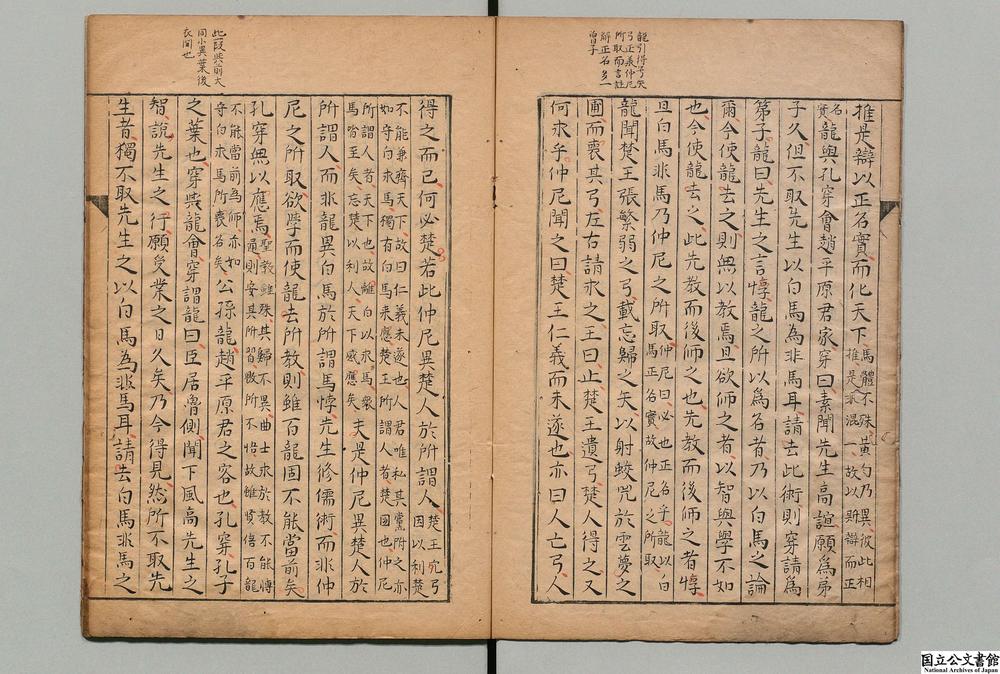 龍引得弓失
弓正義仲尼
所取而言註
解正名多一
曾子
推是辯以正名實而化天下
馬體不殊黃勺乃異彼此相
推是非混一故以斯辯而正
名實
龍與孔穿會趙平原君家穿曰素聞先生高誼願為弟
子久但不取先生以白馬為非馬耳請去此術則穿請為
第子龍曰先生之言悖龍之所以為名者乃以白馬之論
爾今使龍去之則無以教焉且欲師之者以智與學不如
也今使龍去之此先教而後師之也先教而後師之者悖
且白馬非馬乃仲尼之所取
仲尼曰必也正名乎龍以白
馬正名實故仲尼之所取
龍聞楚王張繁弱之弓載忘歸之矢以射蛟兕於雲夢之
圃而喪其弓左右請求之王曰止楚王遺弓楚人得之又
何求乎仲尼聞之曰楚王仁義而未遂也亦曰人亡弓人
得之而已何必楚若此仲尼異楚人於所謂人
楚王失弓
因以利楚
不能兼齊天下故曰仁義未遂也人君唯私其黨附之亦
如守白求馬獨有白馬來應楚王所謂人者楚國也仲尼
所謂人者天下也故離白以求馬衆
馬皆至矣忘楚以利人天下感應矣
夫是仲尼異楚人於
所謂人而非龍異白馬於所謂馬悖先生修儒術而非仲
尼之所取欲學而使龍去所教則雖百龍固不能當前矣
孔穿無以應焉
聖教雖殊其歸不異曲士求於教不能博
通則安其所習毀所不悟故雖賢倍百龍
不能當前為師亦如
守白求馬所喪名矣
公孫龍趙平原君之客也孔穿孔子
之葉也穿與龍會穿謂龍曰臣居魯側聞下風高先生之
智說先生之行願受業之日久矣乃今得見然所不取先
生者獨不取先生之以白馬為非馬耳請去白馬非馬之
此一段與前大
同小異葉後
衣間也
国立公文書館
National Archives of Japan